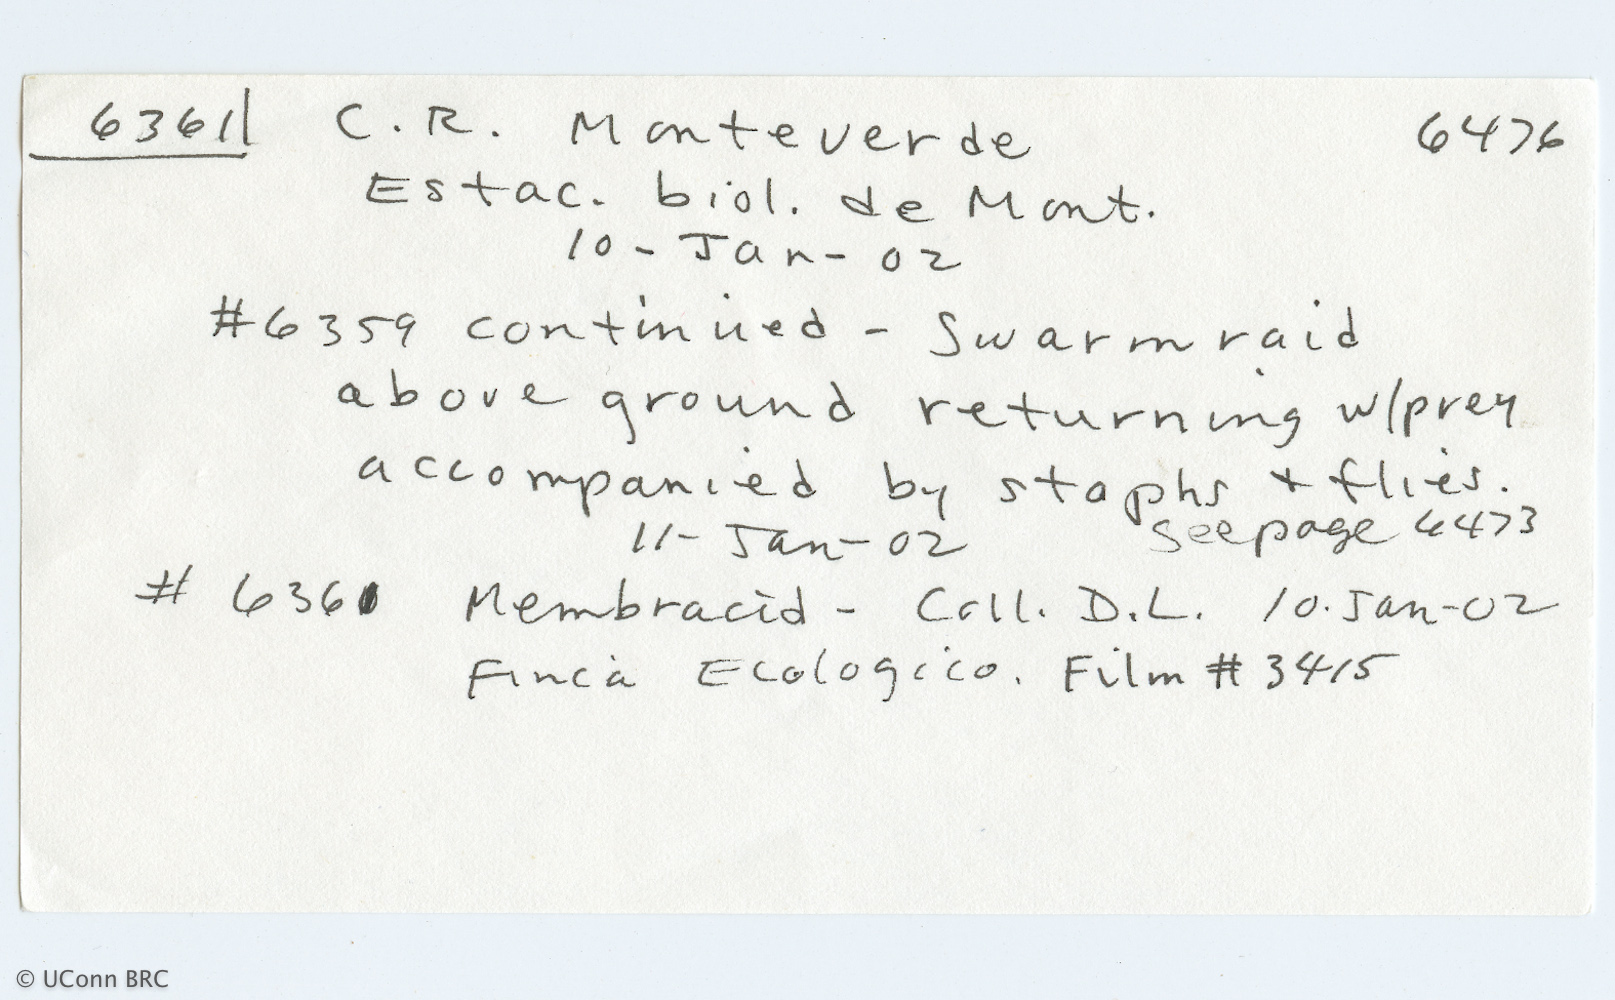 6361 C.R. Monteverde 6476
Estac. biol. de Mont.
10-Jan-02
#6359 continued - Swarmraid
above ground returning w/prey
accompanied by staphs + flies.
11-Jan-02 see page 6473
# 6361 Membracid - Coll. D.L. 10-Jan-02
Finca Ecologico. Film # 3415
© UConn BRC